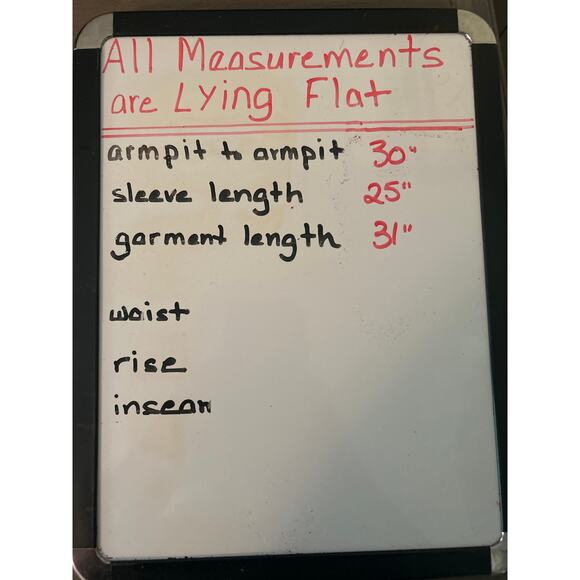 All Measurements
are Lying Flat
armpit to armpit 30"
sleeve length 25"
garment length 31"
waist
rise
inseam